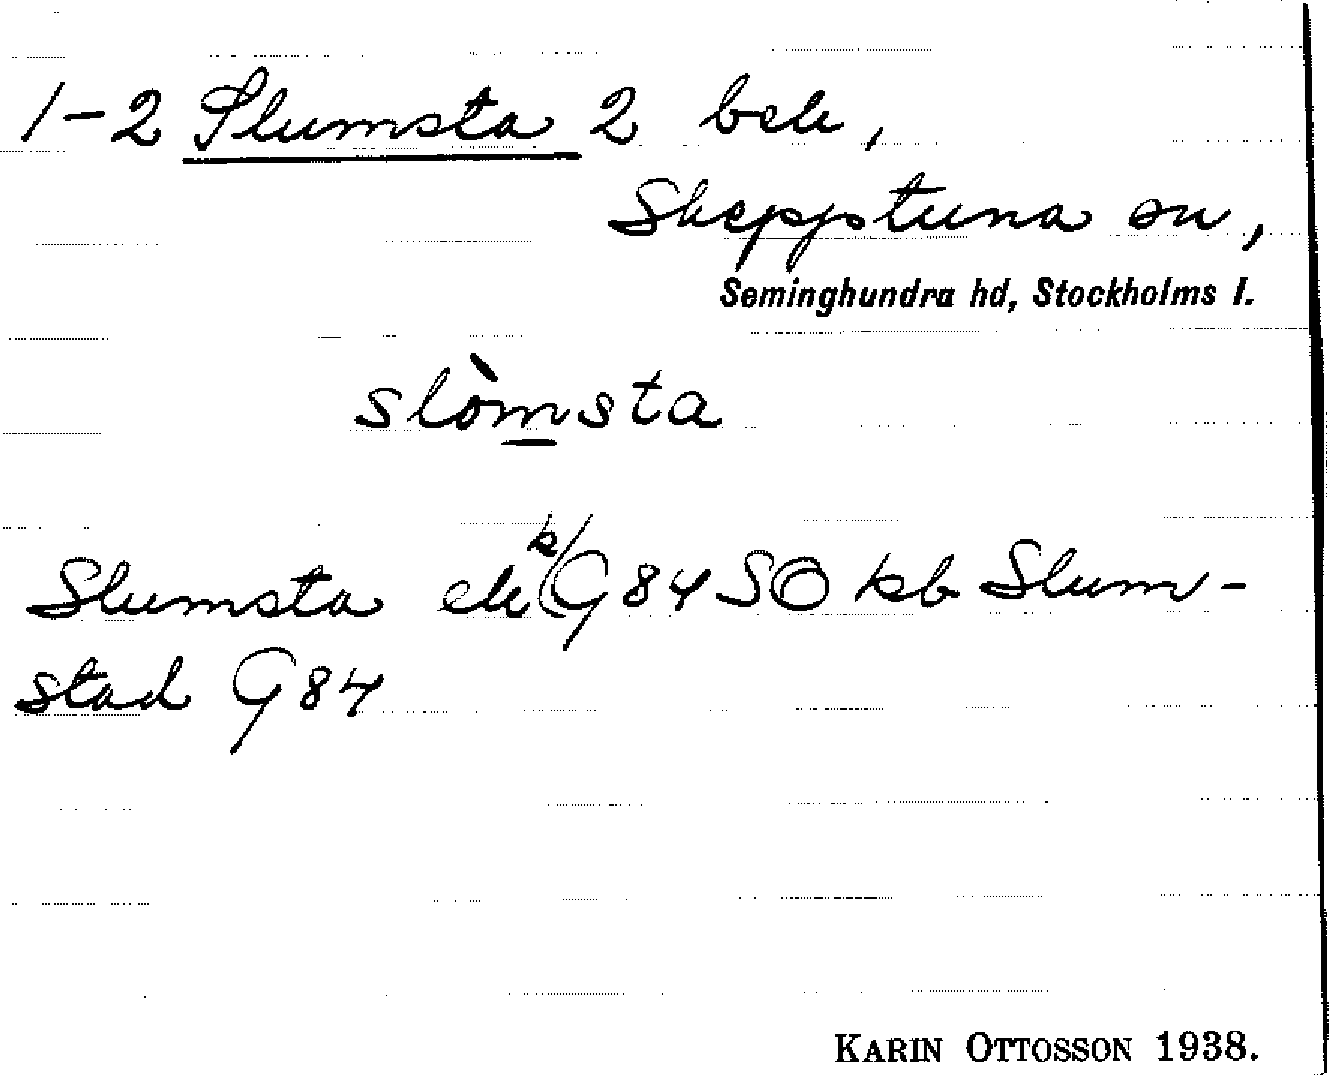 1-2 Slumsta 2 bek,
Skepptuna sn,
Seminghundra hd, Stockholms l.
slòmsta
Slumsta ek k/G84 SO kb Slum-
stad G84
KARIN OTTOSSON 1938.